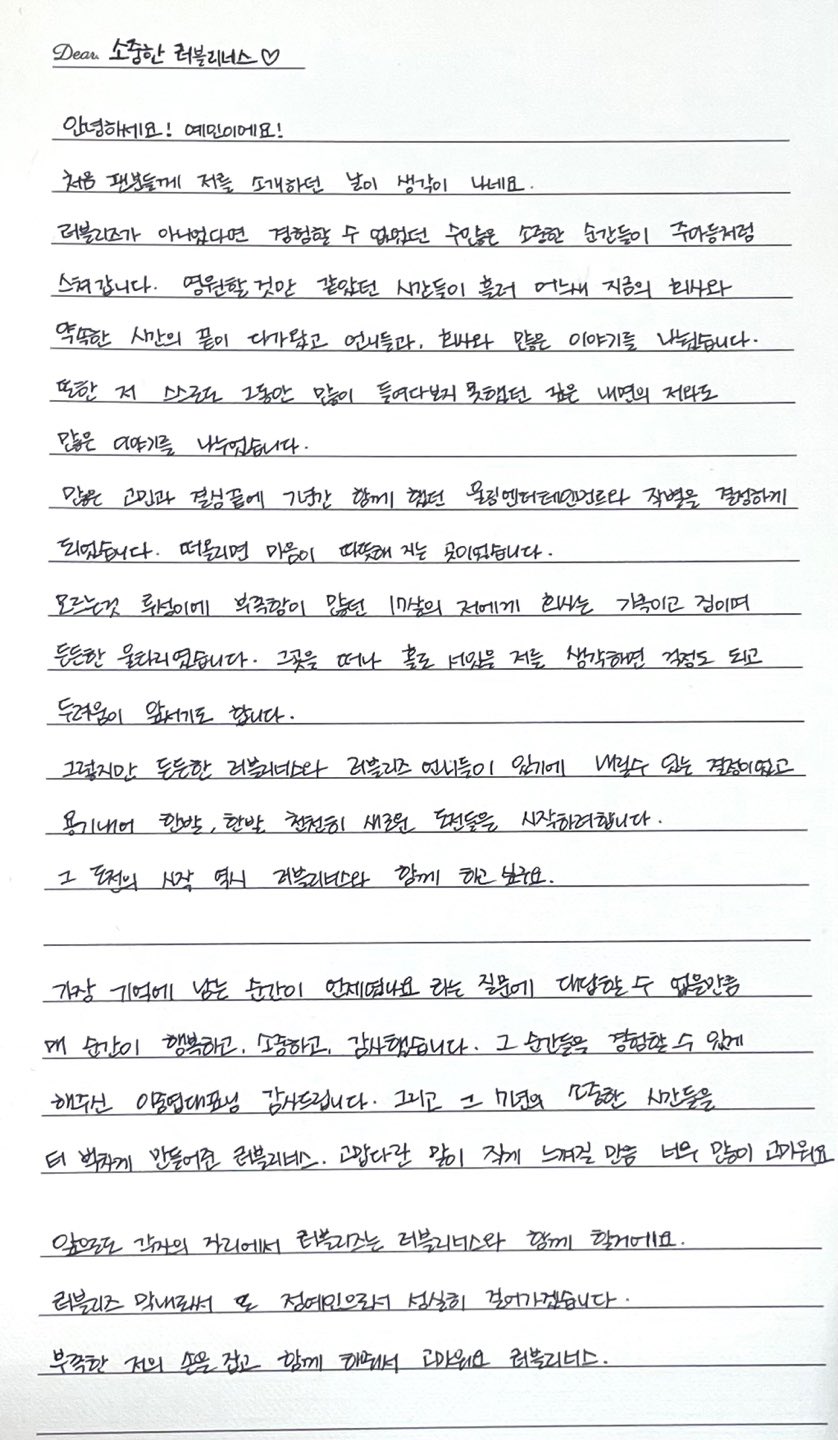 Dear. 소중한 러블리너스♡
안녕하세요! 예인이에요!
처음 팬분들께 저를 소개하던 날이 생각이 나네요.
러블리즈가 아니었다면 경험할 수 없었던 수많은 소중한 순간들이 주마등처럼
스쳐 갑니다. 영원할 것만 같았던 시간들이 흘러 어느새 지금의 회사와
약속한 시간의 끝이 다가왔고 언니들과, 회사와 많은 이야기를 나눴습니다.
또한 저 스스로도 그동안 많이 들여다보지 못했던 깊은 내면의 저와도
많은 이야기를 나누었습니다.
많은 고민과 결심 끝에 7년간 함께 했던 울림엔터테인먼트와 작별을 결정하게
되었습니다. 떠올리면 마음이 따뜻해 지는 곳이었습니다.
모르는것 투성이에 부족함이 많던 17살의 저에게 회사는 가족이고 집이며
든든한 울타리였습니다. 그곳을 떠나 홀로 서있을 저를 생각하면 걱정도 되고
두려움이 앞서기도 합니다.
그렇지만 든든한 러블리너스와 러블리즈 언니들이 있기에 내릴수 있는 결정이었고
용기내어 한발, 한발 천천히 새로운 도전들을 시작하려합니다.
그 도전의 시작 역시 러블리너스와 함께 하고 싶구요.
가장 기억에 남는 순간이 언제였나요 라는 질문에 대답할 수 없을만큼
매 순간이 행복하고, 소중하고, 감사했습니다. 그 순간들을 경험할 수 있게
해주신 이중엽대표님 감사드립니다. 그리고 그 7년의 소중한 시간들을
더 벅차게 만들어준 러블리너스. 고맙다란 말이 작게 느껴질 만큼 너무 많이 고마워요
앞으로도 각자의 자리에서 러블리즈는 러블리너스와 함께 할거에요.
러블리즈 막내로서 또 정예인으로서 성실히 걸어가겠습니다.
부족한 저의 손을 잡고 함께 해줘서 고마워요 러블리너스.